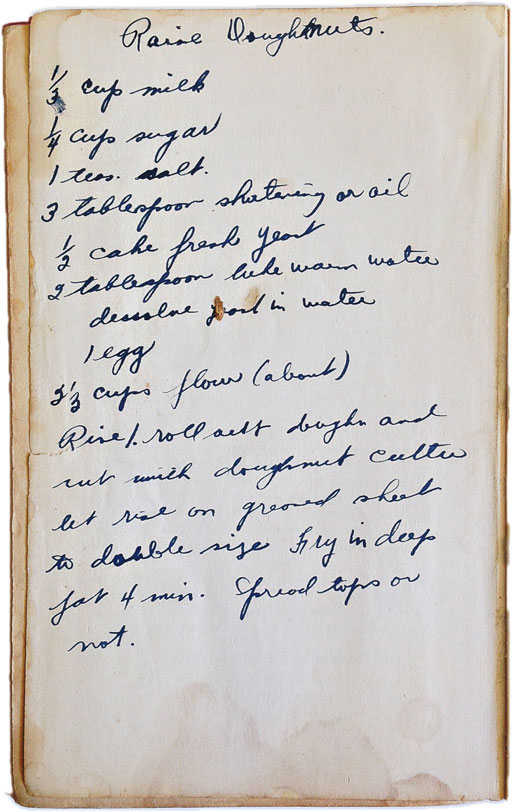 Raise Doughnuts.
1/3 cup milk
1/4 cup sugar
1 teas. salt.
3 tablespoon shortening or oil
1/2 cake fresh yeast
2 tablespoon luke warm water
dessolve yeast in water
1 egg
3 1/3 cups flour (about)
Rise 1. roll out dough and
cut with doughnut cutter
let rise on greased sheet
to double size Fry in deep
fat 4 min. Spread tops or
not.